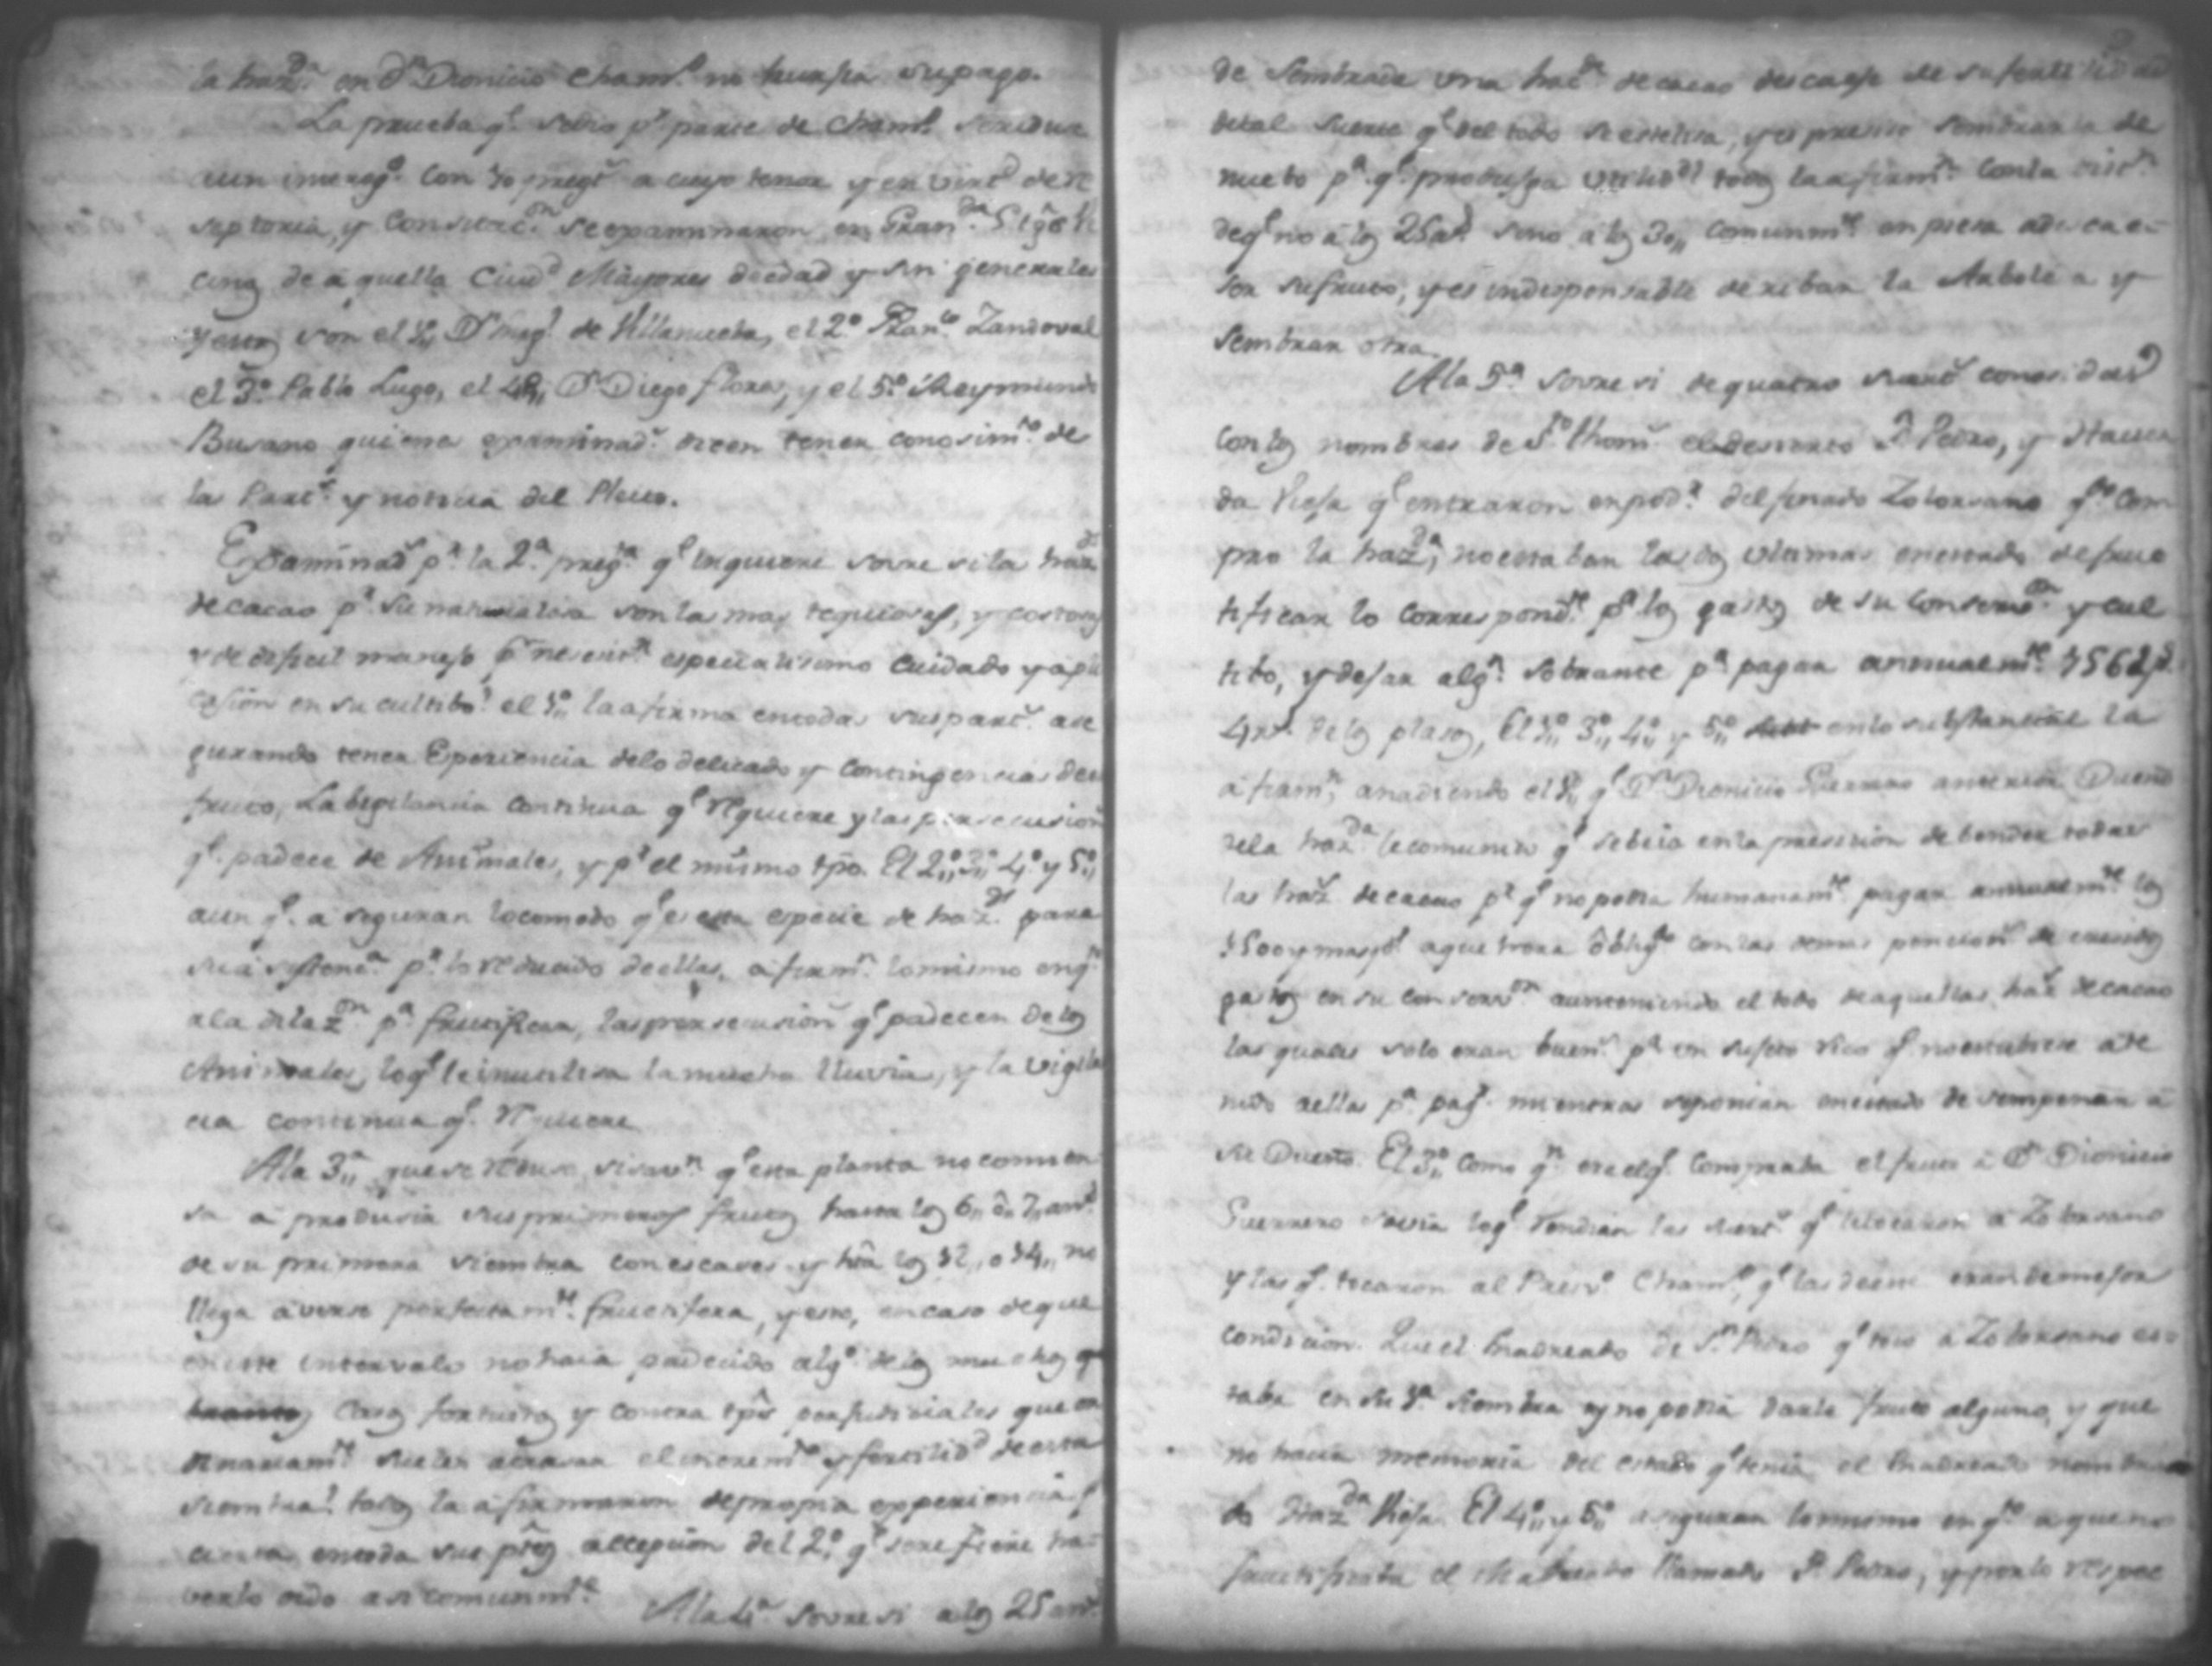 la haz.da en Dn Dionicio Cham.o no havria su pago.
La prueba q.e se dio p.r parte de Cham.o se reduce
a un interrog.o con 10 preg.s a cuyo tenor y en virt.d de re
septoria, y consecuc.on se examinaron en Gran.da 5 tgõs ve
cinos de aquella Ciud.d Mayores de edad y sin generales
y estos son el 1.o Dn Mag.l de Villanueba, el 2.o Fran.co Zandoval
el 3.o Pablo Lugo, el 4.o Dn Diego flores, y el 5.o Reymundo
Busano quienes examinad.s dicen tener conosim.to de
las Part.s y noticia del Pleito.
Examinad.s p.r la 2.a preg.ta q.e inquiere sovre si las haz.das
de cacao p.r su naturalesa son las mas tequiosas, y costosas
y de dificil manejo p.r nesesit.r especialisimo cuidado y apli
casion en su cultibo? el 1.o la afirma en todas sus part.s ase
gurando tener Experiencia de lo delicado y contingencias de su
fruto, La bigilancia continua q.e requiere y las persecusion.s
q.e padece de Animales, y p.r el mismo tpõ. El 2.o 3.o 4.o y 5.o
aun q.e aseguran lo comodo q.e es esta especie de haz.das para
su asistenc.a p.r lo reducido de ellas, afirm.n lo mismo en q.to
a la dilaz.on p.a fructificar, las persecusion.s q.e padecen de los
Animales, lo q.e le inutilisa la mucha lluvia, y la vigilan
cia continua q.e requiere
A la 3.a que se reduse, si sav.n q.e esta planta no comien
sa a produsir sus primeros frutos hasta los 6, o 7 an.s
de su primera siembra con escases y hta los 12, o 14, no
llega a verse perfectam.te fructifera, y esto, en caso de que
en este intervalo no haia padecido alg.o de los muchos q
casos fortuitos y contra tpõs perjudiciales que or
dinariam.te suelen atrasar el increm.to y fertilid.d de esta
siembra? todos la afirmaron de propia experiencia y
cierta en toda sus ptes accepcion del 2.o q.e se refiere ha=
verlo oido asi comunm.te
A la 4.a sovre si a los 25 an.s
de Sembrada una haz.da de cacao descaese de su fertilidad
de tal suerte q.e del todo se esterilisa, y es presiso sembrarla de
nuebo p.a q.e produsga utilid.d? todos la afirm.n con la dist.n
de q.e no a los 25 a.s sino a los 30, comunm.te empiesa a descaes=
ser su fruto, y es indispensable derribar la Arboleda y
sembrar otra.
A la 5.a sovre si de quatro suert.s conosidas
con los nombres de S.to Thom.s el desierto S.n Pedro, y Hacien
da Viesa q.e entraron en pod.r del finado Zolorsano q.do com
pro la haz.da, no estaban las dos ultimas en estado de fruc
tificar lo correspond.te p.a los gastos de su conserv.on y cul
tibo, y dejar alg.n sobrante p.a pagar annualm.te 1562 p.s
4 r.s de los plasos, El 1.o 3.o 4.o y 5.o en lo substancial la
afirm.n, anadiendo el 1.o q.e Dn Dionicio Guerrero anterior Dueño
de la haz.da le comunico q.e se beia en la presicion de bender todas
las haz.s de cacao p.r q.e no podia humanam.te pagar annualm.te los
1500 y mas p.s a que havia obligd.o con las demas pension.s de cresidos
gastos en su conserv.on aun teniendo el todo de aquellas haz.s de cacao
las quales solo eran buen.s p.a un sujeto rico q.e no estubiese ate
nido a ellas p.a pag.r mientras se ponian en estado de desempeñar a
su Dueño. El 3.o como q.n era el q.e compraba el fruto a Dn Dionicio
Guerrero savia lo q.e rendian las suert.s q.e le tocaron a Zolorsano
y las q.e tocaron al Presv.o Cham.o, q.e las de este eran de mejor
condicion. Que el Madreado de S.n Pedro q.e toco a Zolorsano es=
taba en su 1.a siembra y no podia darle fruto alguno, y que
no hacia memoria del estado q.e tenia el Madreado nombra
do Haz.da Viesa. El 4.o y 5.o aseguran lo mismo en q.to a que no
fructificaba el Madreado llamado S. Pedro, y por lo respec